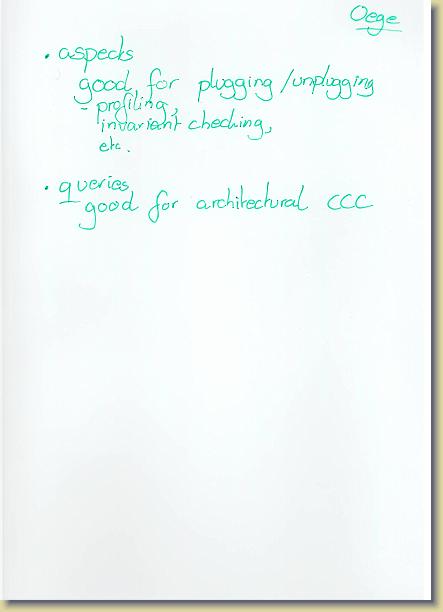 Oege
• aspects
good for plugging/unplugging
- profiling,
invariant checking,
etc.
• queries
good for architectural CCC